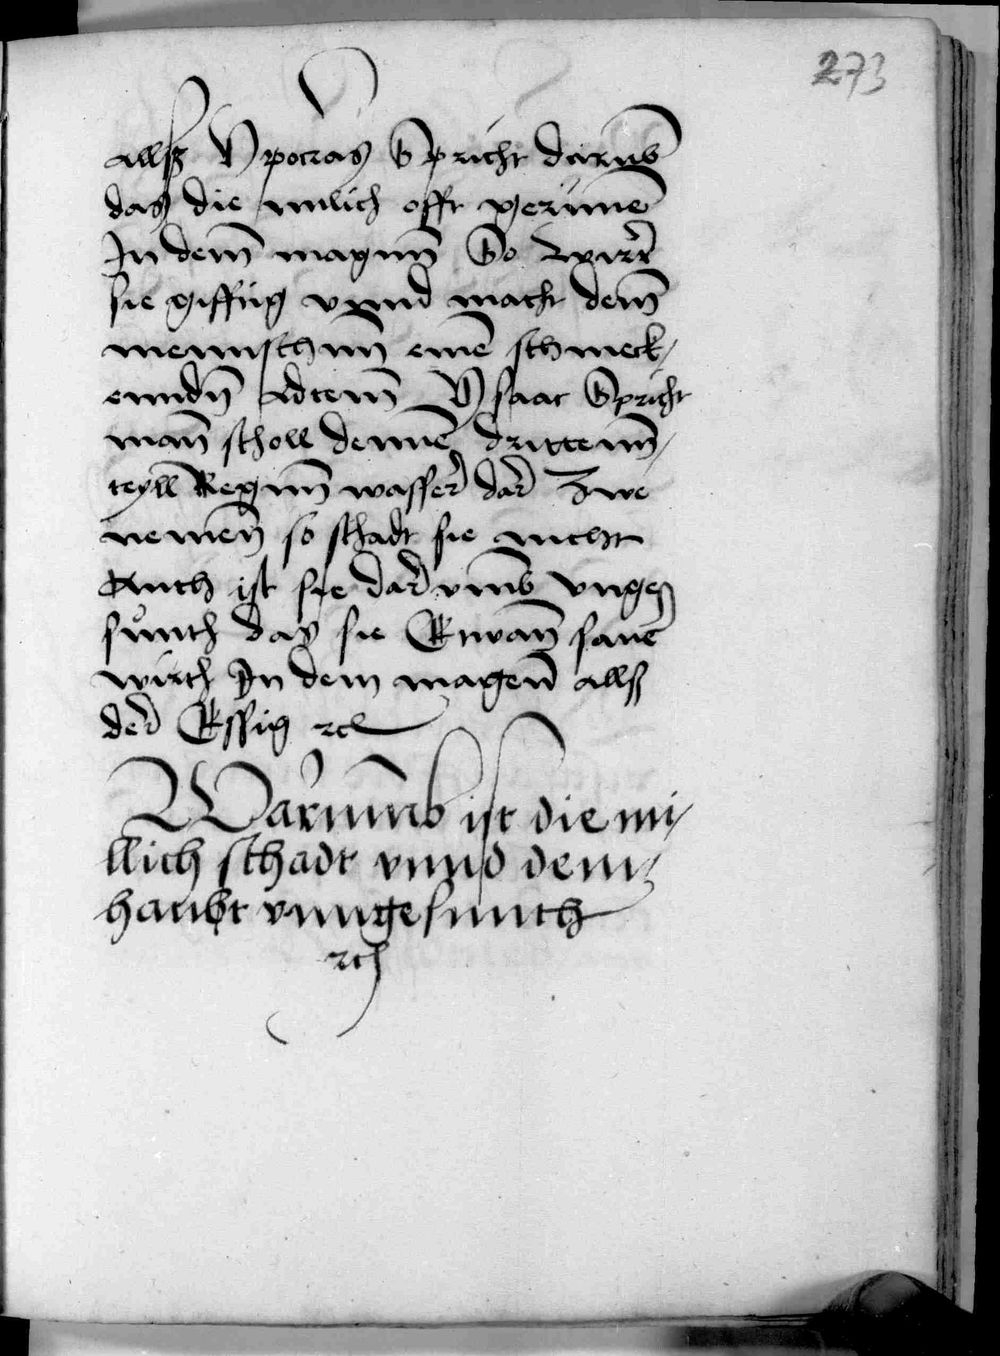 273
allß Ypocras Spricht darūb
das die milich offt gerinnē
In dem̄ magnn̄ So wirt
sie gifftig vnnd macht dem̄
mennschnn̄ einē schmeck/
enndn̄ Adtem̄ Ysaac Spricht
man̄ scholl dennē drittenn̄/
teyll Regnn̄ wasser dar Zwe
nemen̄ so schadt sie nicht
Auch ist sie dar vm̄b vnge
sůnth das sie Etwan̄ sauer
wirth In dem magenn̄ allß
der Essig rc
Warumb ist die mi/
llich schadt vnnd dem
haubt vnngesunth
rc